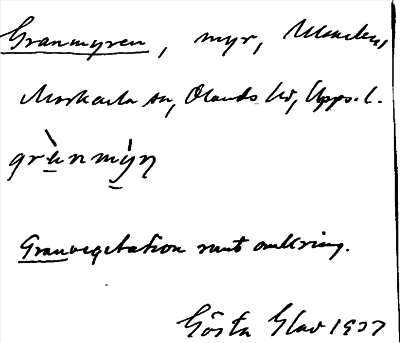 Granmyren, myr,
Morkarla sn, Olands hd, Upps. l.
grànmýn
Granvegetation runt omkring.
Gösta Glav 1937